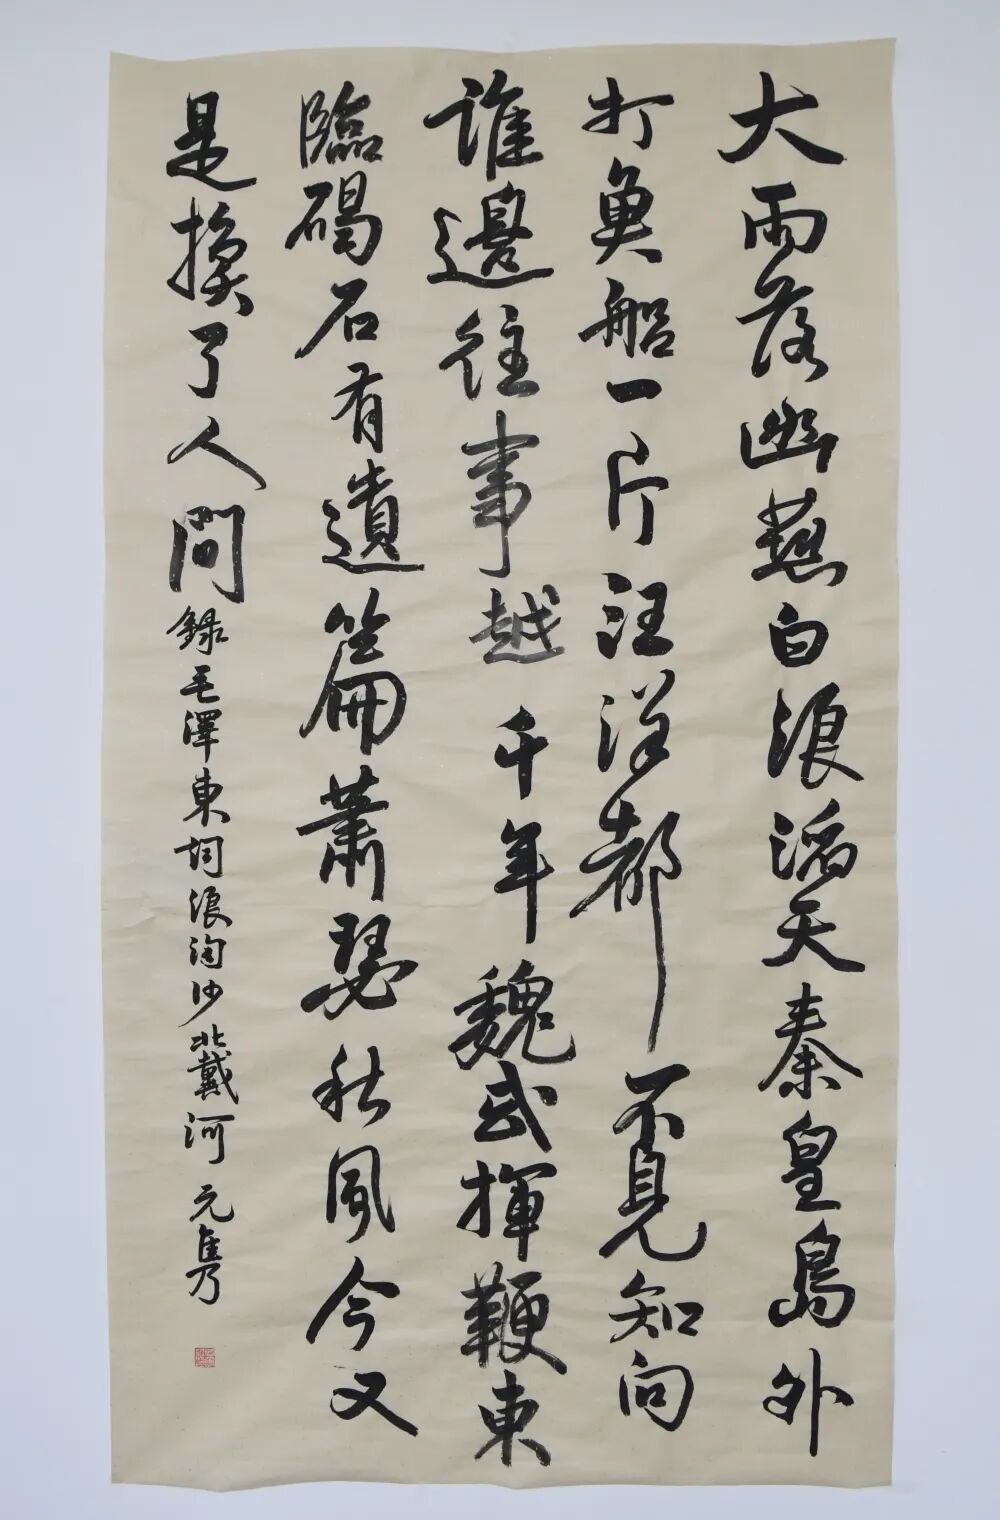 大雨落幽燕白浪滔天秦皇島外
打魚船一片汪洋都不見知向
誰邊往事越千年魏武揮鞭東
臨碣石有遺篇蕭瑟秋風今又
是換了人間
錄毛澤東詞浪淘沙北戴河 元雋